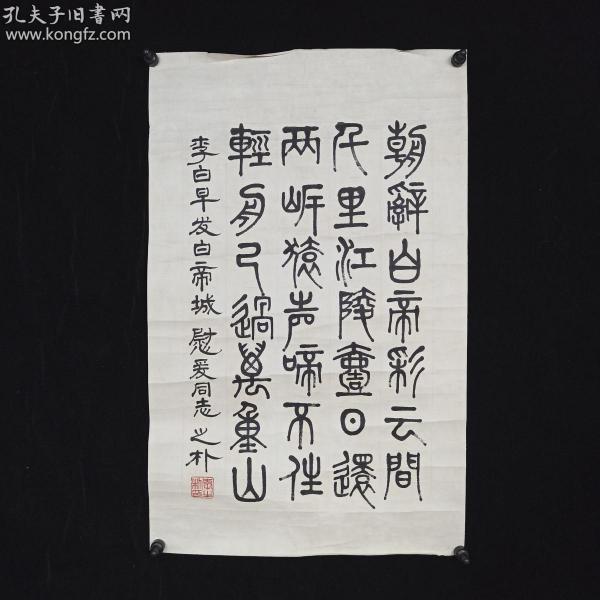 孔夫子旧書网
www.kongfz.com
朝辭白帝彩云間
千里江陵壹日還
两岸猿声啼不住
輕舟已過萬重山
李白早发白帝城 慰爰同志 之朴